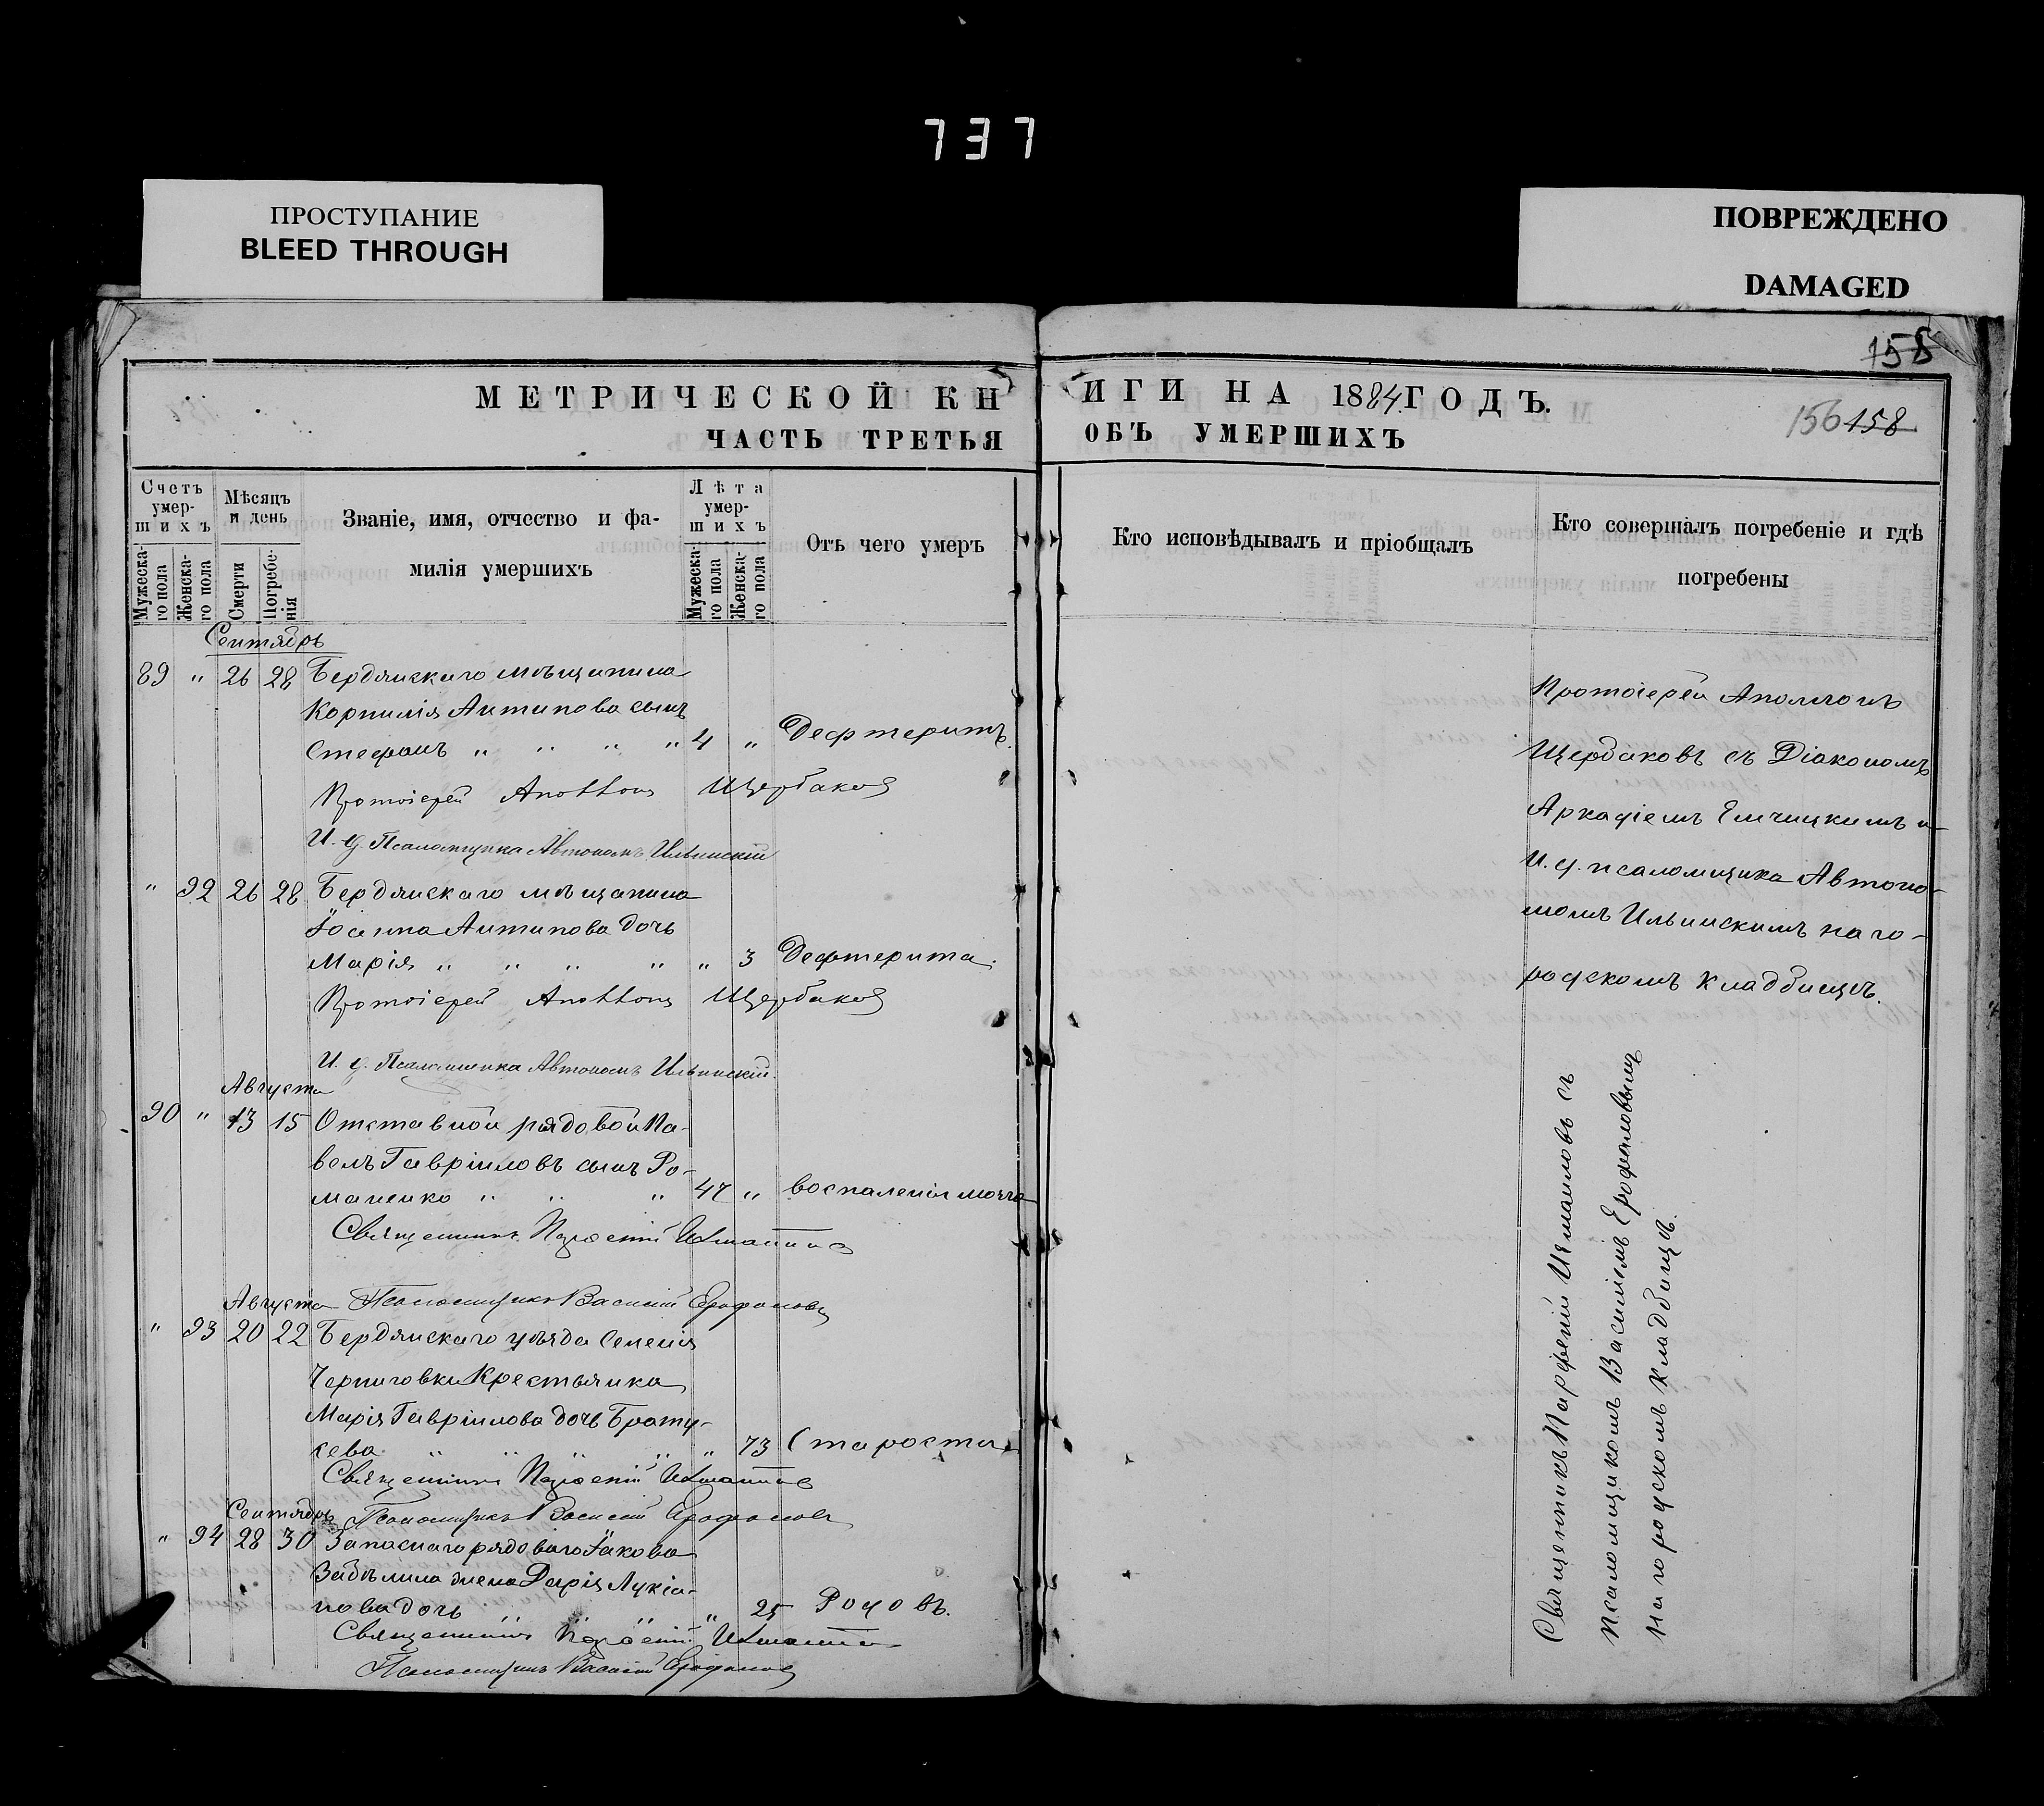 737
ПРОСТУПАНИЕ
BLEED THROUGH
ПОВРЕЖДЕНО
DAMAGED
158
МЕТРИЧЕСКОЙ КН
ИГИ НА 1884 ГОДЪ.
156 158
ЧАСТЬ ТРЕТЬЯ
ОБЪ УМЕРШИХЪ
Счетъ умер-шихъ
Мужеска-го пола
Женска-го пола
Мѣсяцъ и день
Смерти
Погребе-нія
Званіе, имя, отчество и фа-
милія умершихъ
Лѣта умер-шихъ
Мужеска-го пола
Женска-го пола
Отъ чего умеръ
Кто исповѣдывалъ и пріобщалъ
Кто совершалъ погребеніе и гдѣ
погребены
Сентябрь
89 " 26 28 Бердянскаго мѣщанина
Корнилія Антипова сынъ
Стефанъ " " " " 4 " Дефтеритъ.
Протоіерей Аполлонъ Щербаковъ
И. д. Псаломщика Автономъ Ильинскій
" 92 26 28 Бердянскаго мѣщанина
Іосифа Антипова дочь
Марія " " " " " 3 Дефтерита.
Протоіерей Аполлонъ Щербаковъ
И. д. Псаломщика Автономъ Ильинскій.
Августа
90 " 13 15 Отставной рядовой Па-
велъ Гавріиловъ сынъ Ро-
маненко " " " 47 " воспаленія мозга
Священникъ Парфеній
Августа Псаломщикъ Василій
" 93 20 22 Бердянскаго уѣзда Селенія
Черниговки Крестьянка
Марія Гавріилова дочь Брату-
сева " " " " " 73 Старости
Священникъ Парфеній
Сентябрь Псаломщикъ Василій
" 94 28 30 Запаснаго рядоваго Іакова
Забѣлина жена Дарія Лукіа-
нова дочь " " " " 25 Родовъ.
Священникъ Парфеній
Псаломщикъ Василій
Протоіерей Аполлонъ
Щербаковъ съ Діакономъ
Аркадіемъ Емчицкимъ и
И. д. псаломщика Автоно-
момъ Ильинскимъ на го-
родскомъ кладбищѣ.
Священникъ Парфеній съ
псаломщикомъ Василіемъ
на городскомъ кладбищѣ.